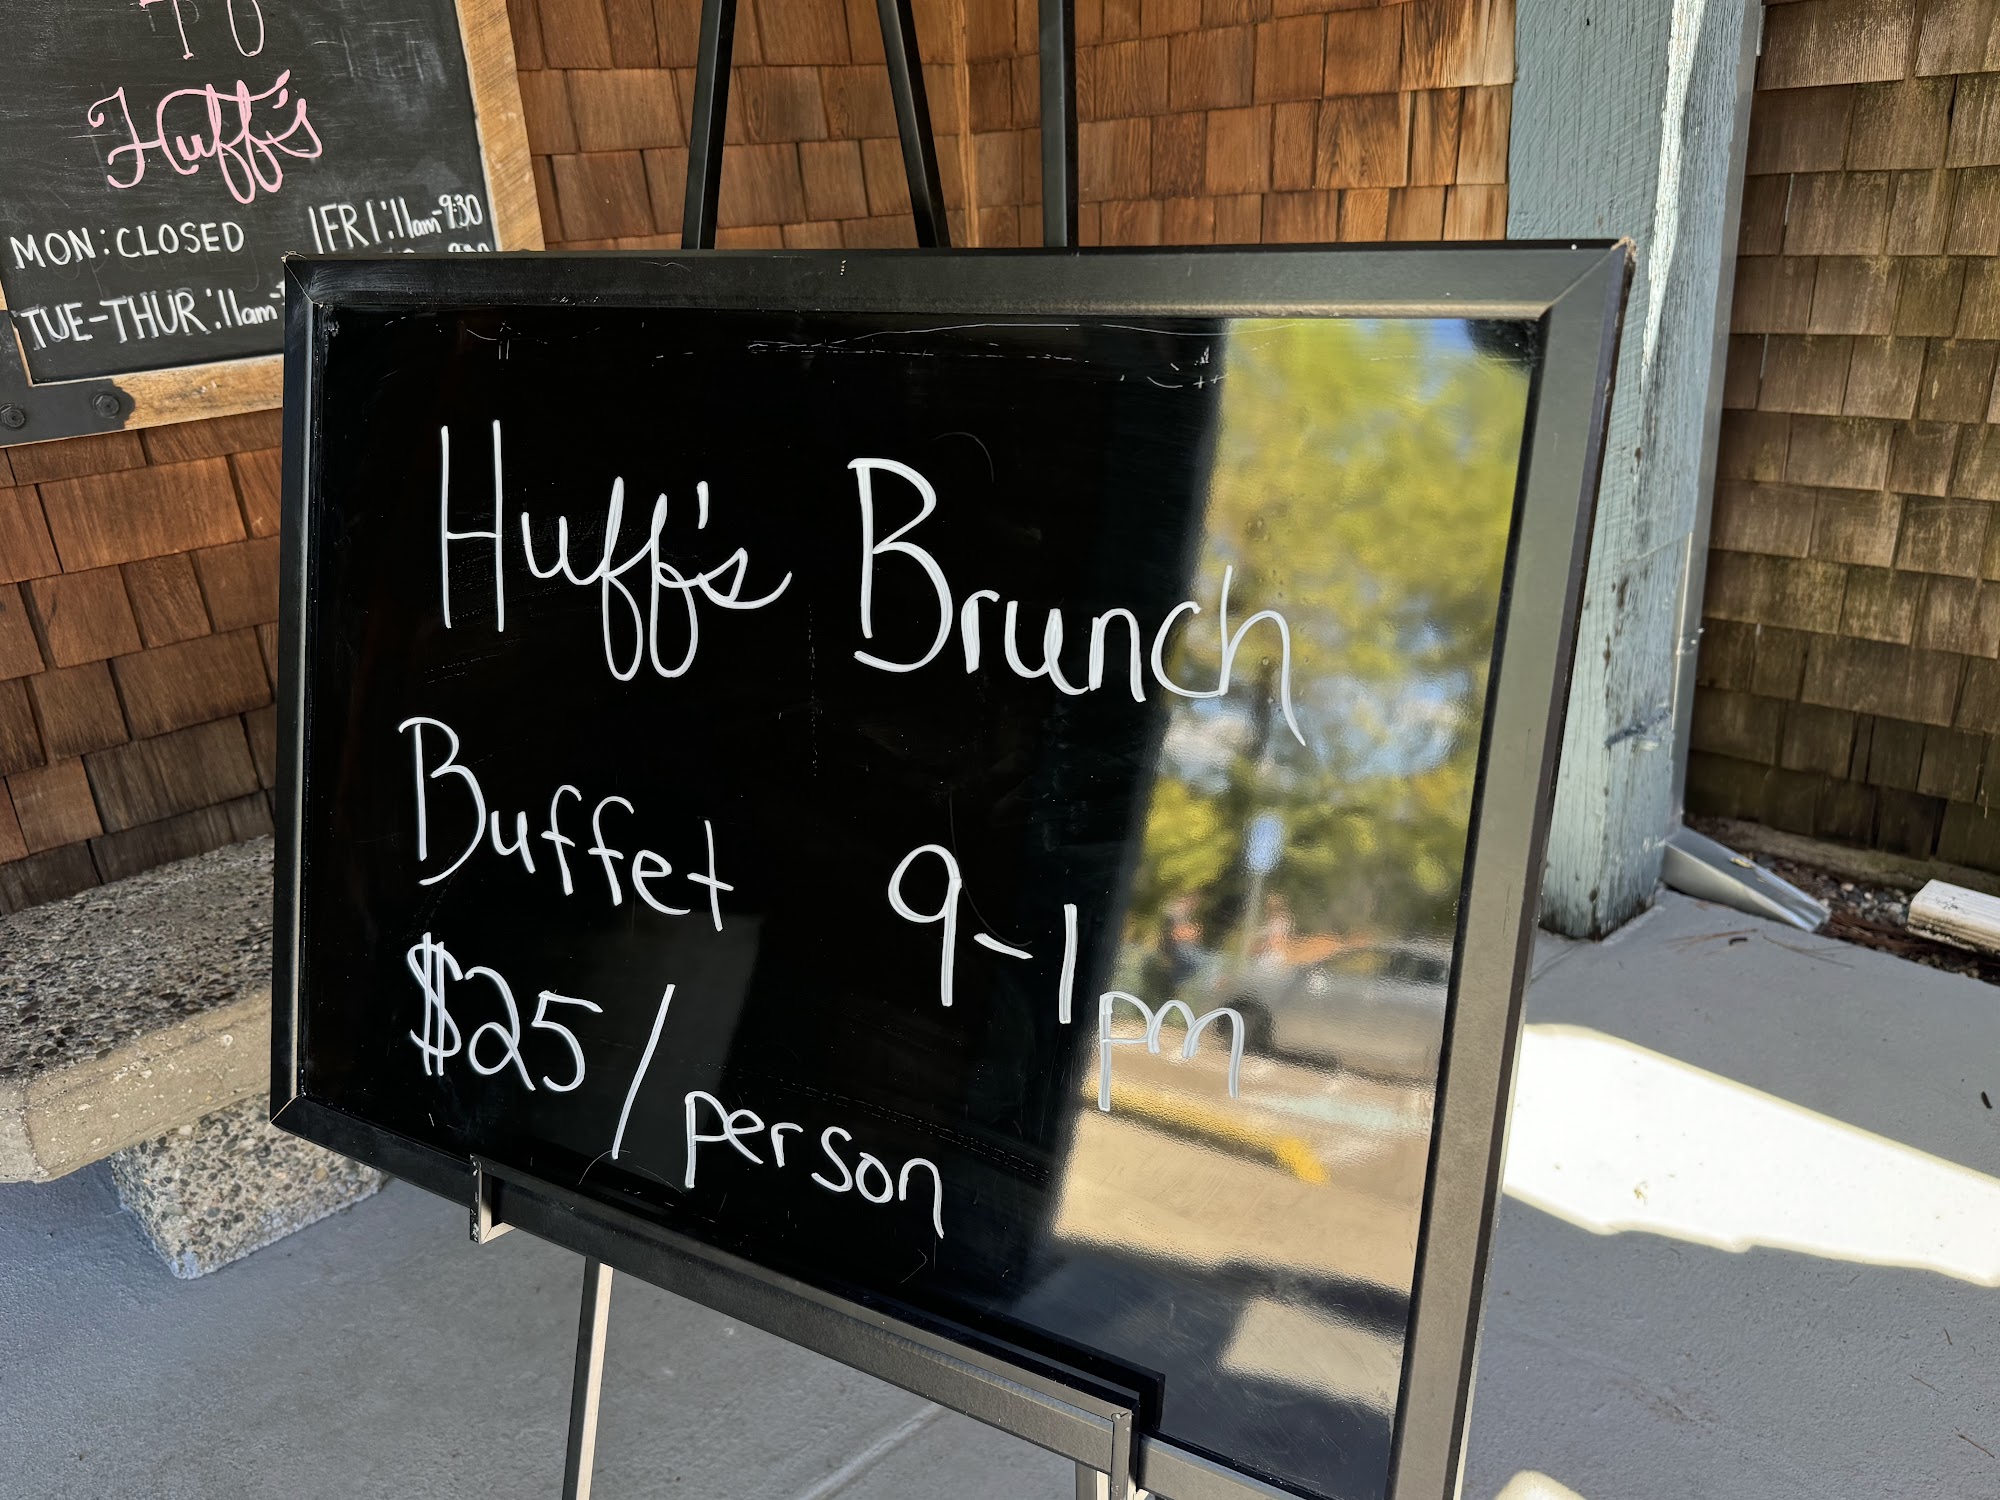 TO
Huff's
MON: CLOSED
FRI: 11am-9:30
TUE-THUR: 11am-
Huff's Brunch
Buffet 9-1pm
$25/person